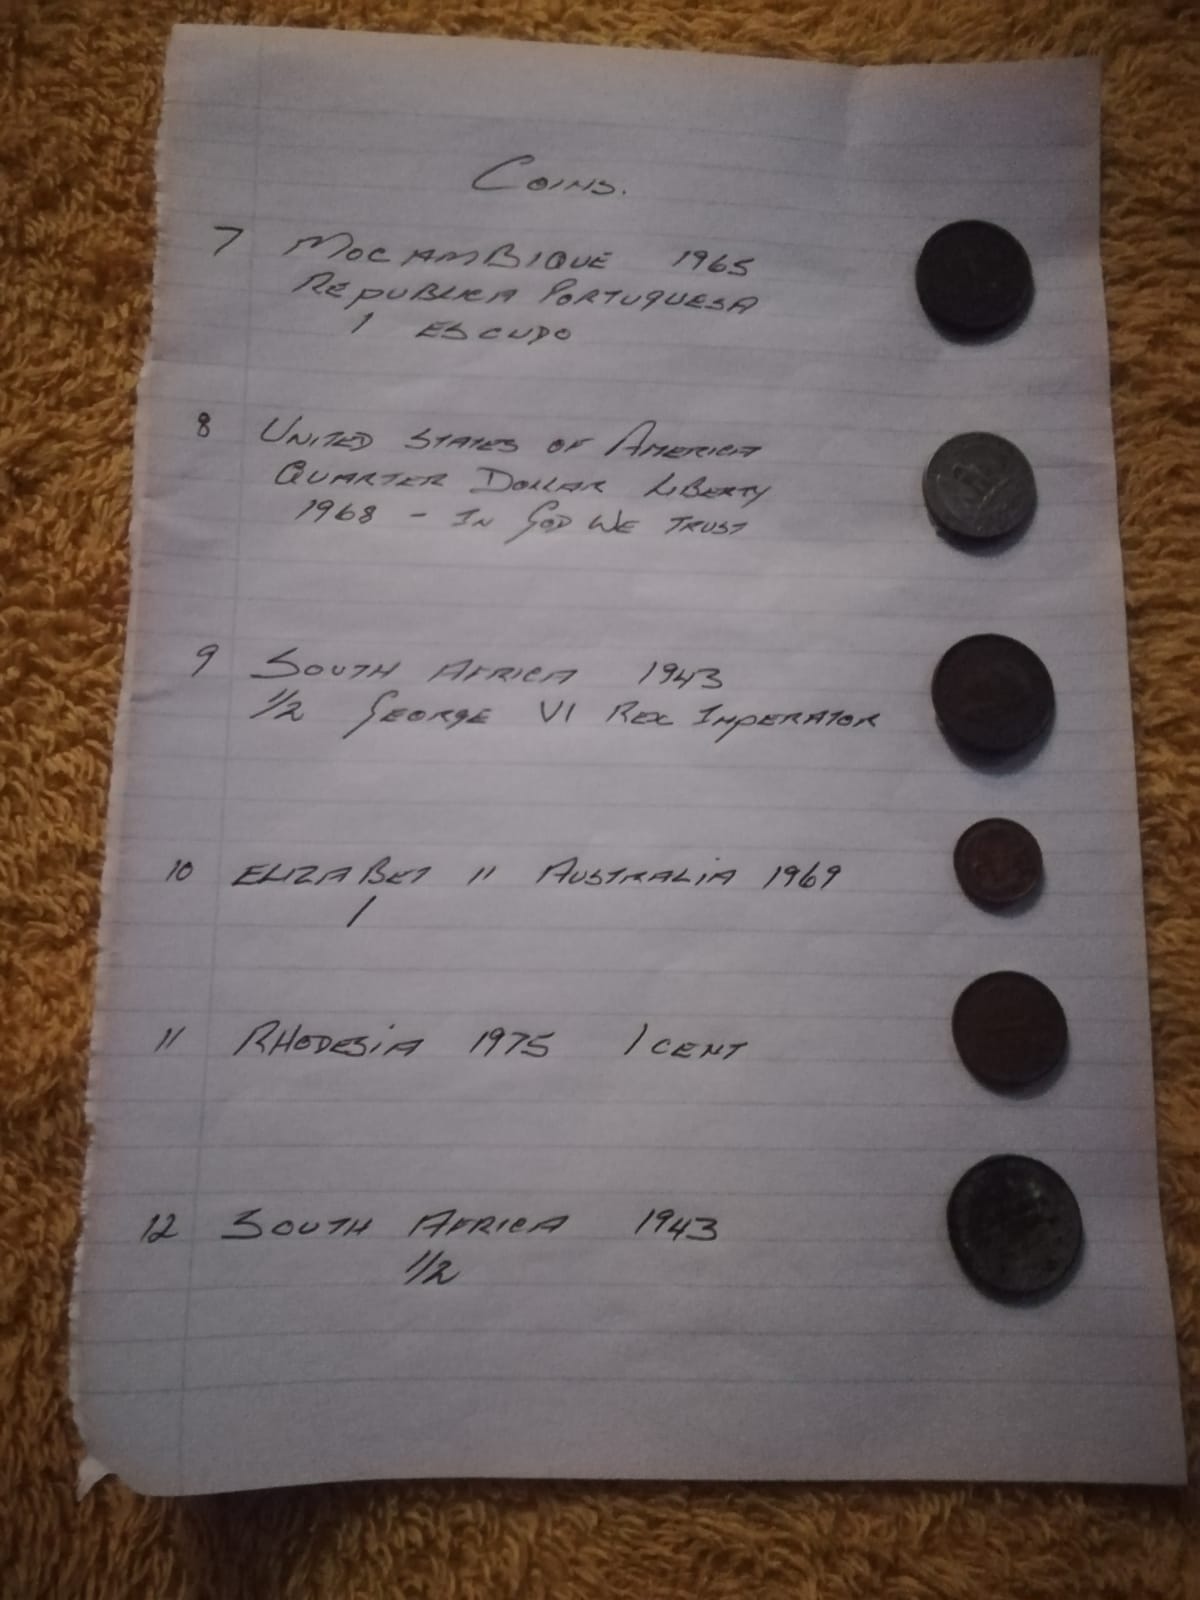 COINS.
7 MOCAMBIQUE 1965
REPUBLICA PORTUGUESA
1 ESCUDO
8 UNITED STATES OF AMERICA
QUARTER DOLLAR LIBERTY
1968 - IN GOD WE TRUST
9 SOUTH AFRICA 1943
1/2 GEORGE VI REX IMPERATOR
10 ELIZABET II AUSTRALIA 1969
1
11 RHODESIA 1975 1 CENT
12 SOUTH AFRICA 1943
1/2